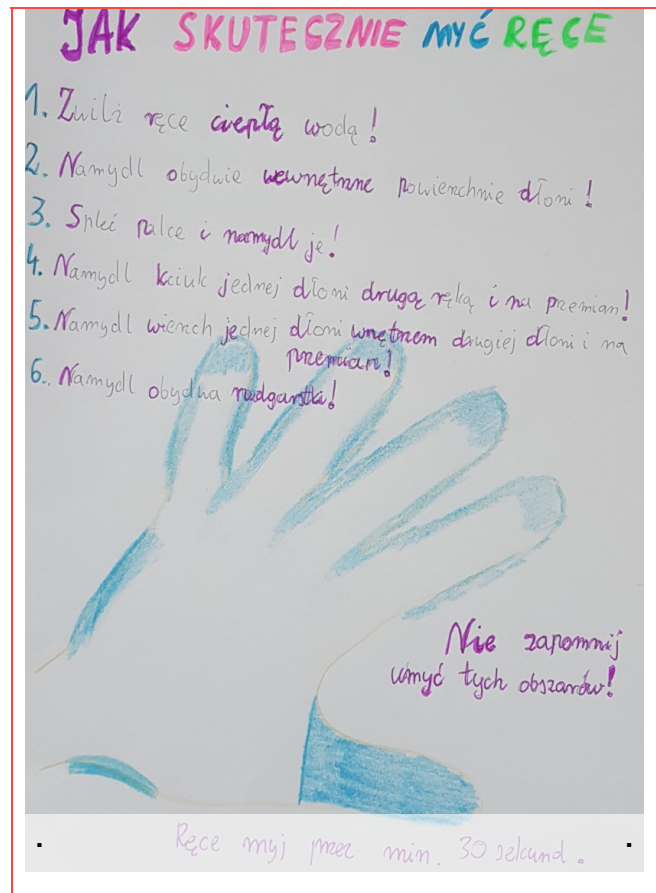 JAK SKUTECZNIE MYĆ RĘCE
1. Zwilż ręce ciepłą wodą!
2. Namydl obydwie wewnętrzne powierzchnie dłoni!
3. Spleć palce i namydl je!
4. Namydl kciuk jednej dłoni drugą ręką i na przemian!
5. Namydl wierzch jednej dłoni wnętrzem drugiej dłoni i na
przemian!
6. Namydl obydwa nadgarstki!
Nie zapomnij
umyć tych obszarów!
Ręce myj przez min. 30 sekund.